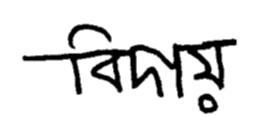 বিদায়